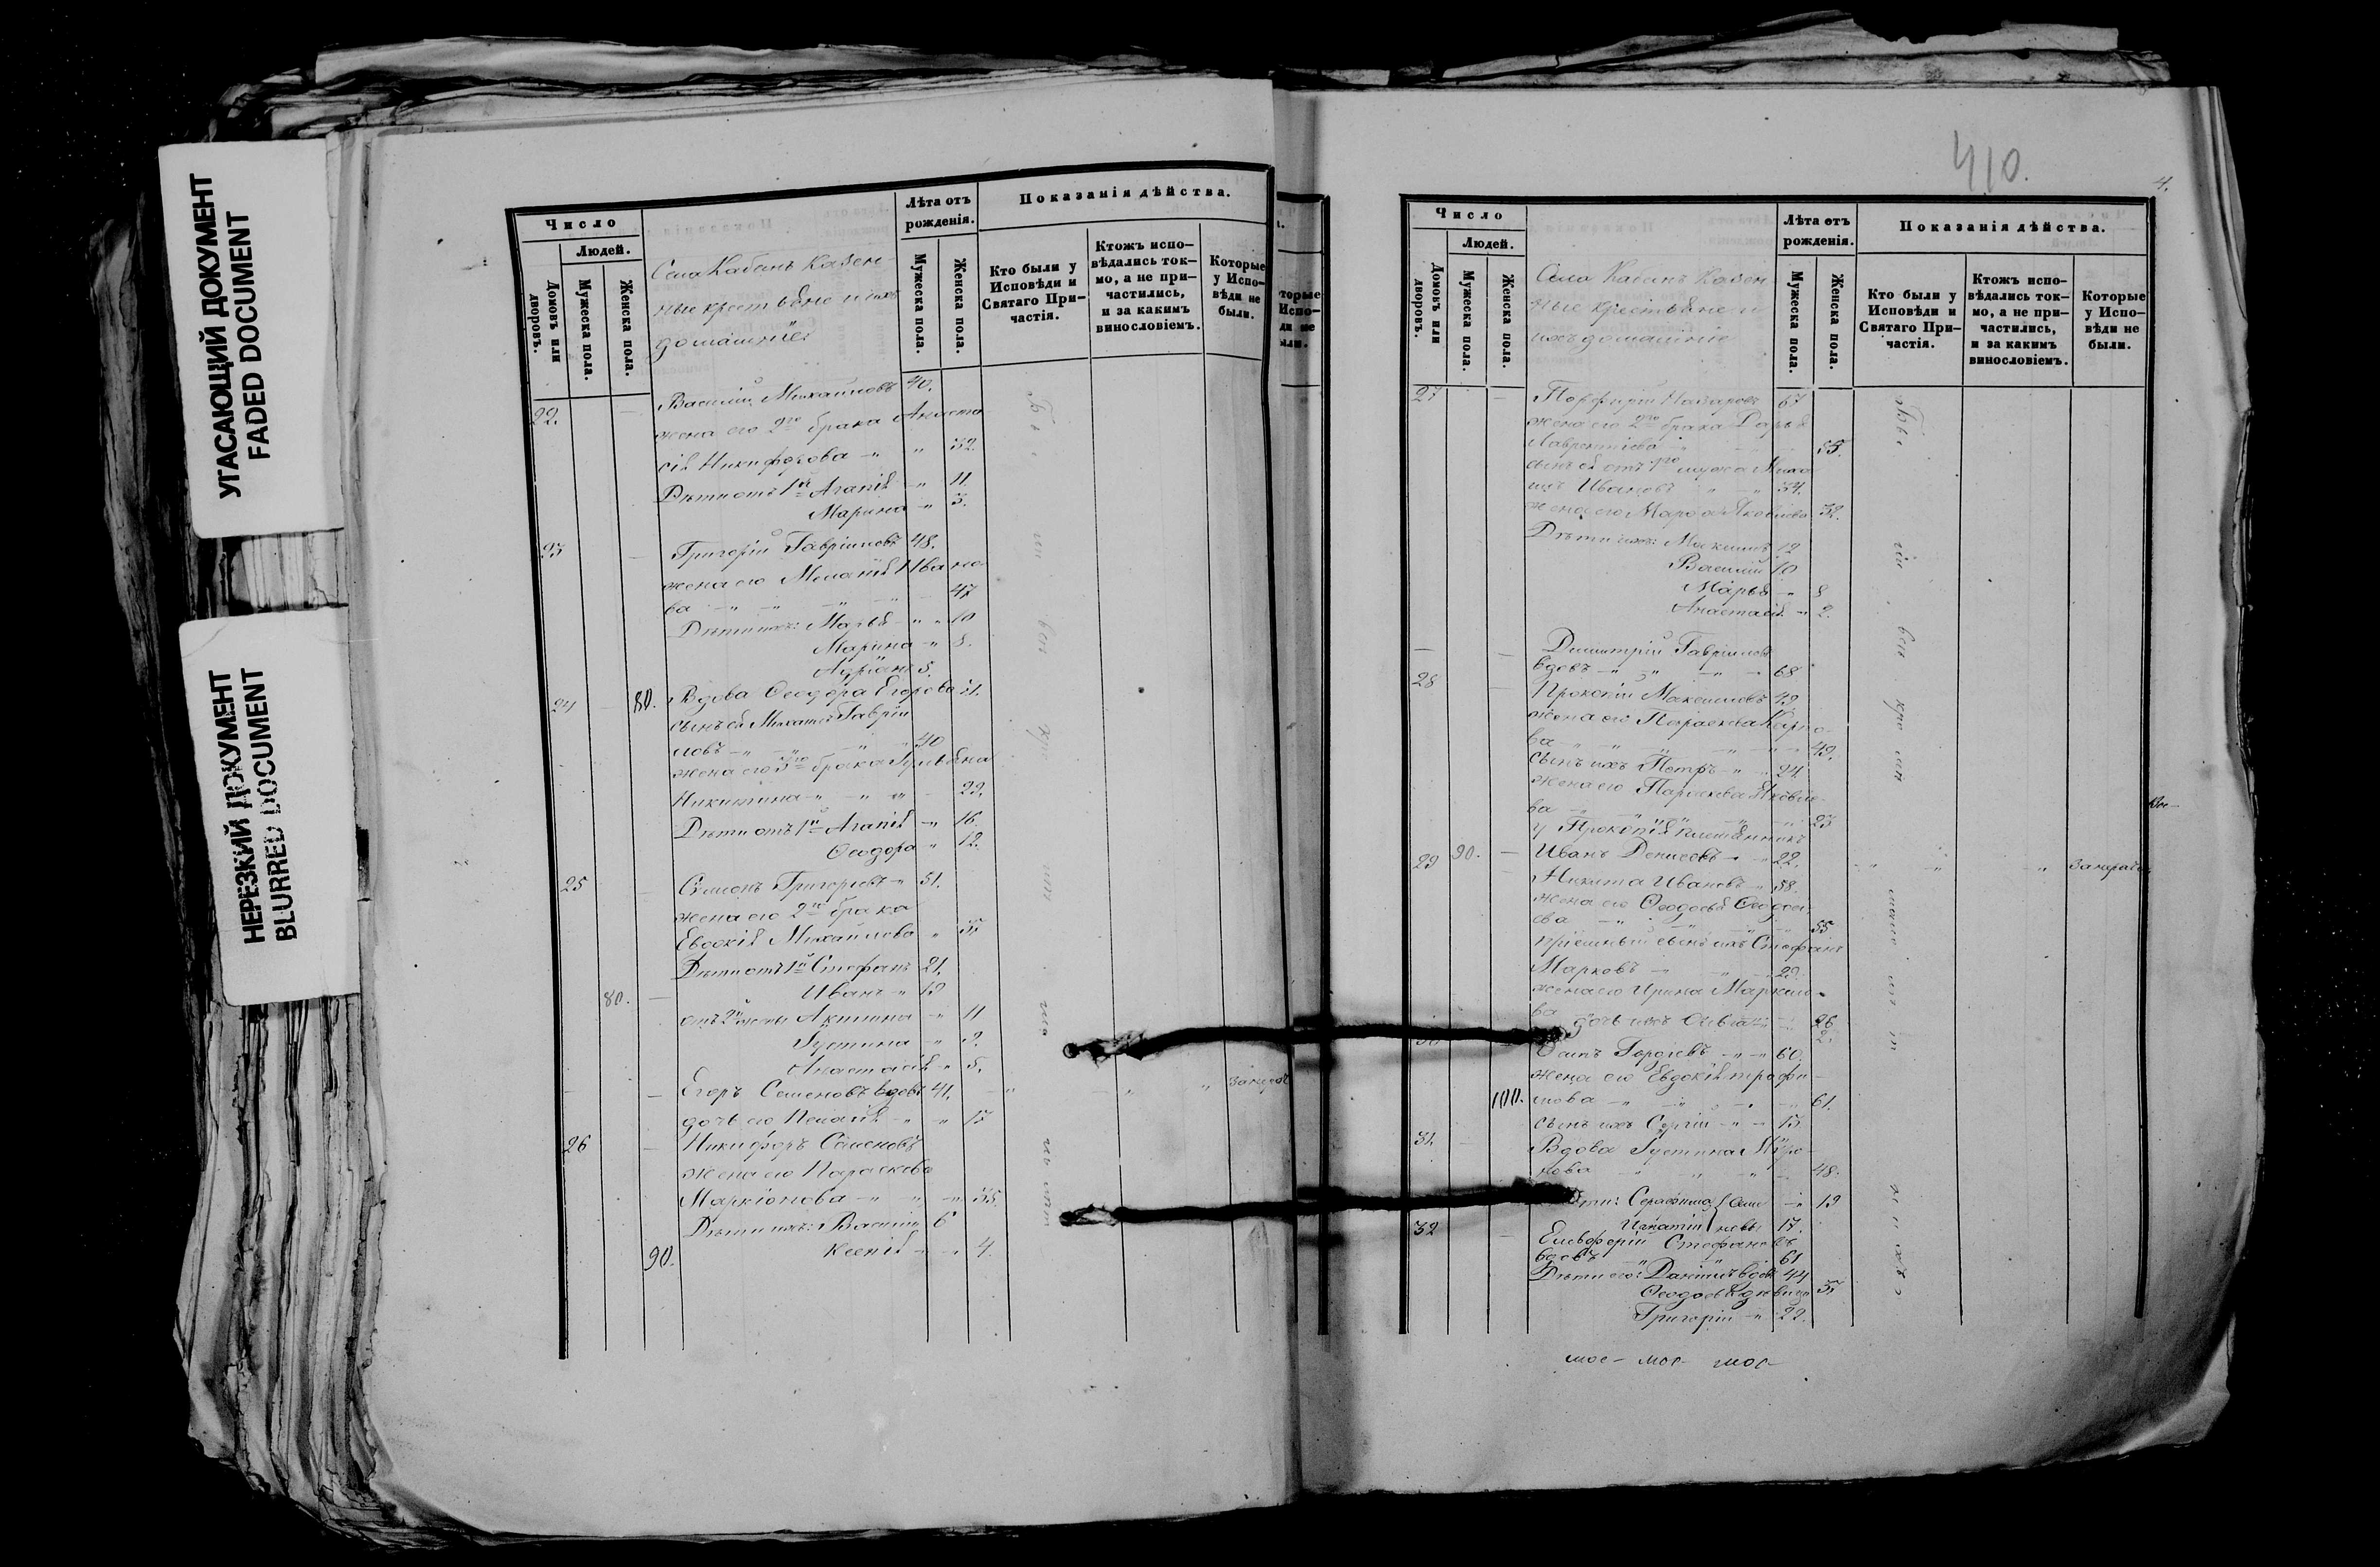 УГАСАЮЩИЙ ДОКУМЕНТ
FADED DOCUMENT
НЕРЕЗКИЙ ДОКУМЕНТ
BLURRED DOCUMENT
Число
Людей.
Домовъ или дворовъ.
Мужеска пола.
Женска пола.
Села Кабанъ Казен-
ные крестьяне и ихъ
домашніе
Лѣта отъ рожденія.
Мужеска пола.
Женска пола.
Показанія дѣйства.
Кто были у Исповѣди и Святаго При-частія.
Ктожъ испо-вѣдались ток-мо, а не при-частились, и за какимъ винословіемъ.
Которые у Испо-вѣди не были.
22. Василій Михайловъ 40.
жена его 2го брака Анаста
сія Никифорова 32.
Дѣти отъ 1й Агапія 11.
Марина 3.
23 Григорій Гавріиловъ 48.
жена его Меланія Ивано-
ва 47
Дѣти ихъ: Марья 10
Марина 8.
Адріанъ 5.
24 80. Вдова Ѳеодора Егорова 51.
сынъ ея Михаилъ Гаврі
ловъ 40
жена его 3го брака Іульяна
Никитина 29.
Дѣти отъ 1й Агапія 16.
Ѳеодора 12.
25 Симеонъ Григорьевъ 51.
жена его 2го брака
Евдокія Михайлова 35
Дѣти отъ 1й Стефанъ 21.
80. Иванъ 19
отъ 2й жены Акилина 11
Іустина 9.
Анастасія 5.
Егоръ Семеновъ вдовъ 41.
дочь его Пелагія 17
26 Никифоръ Семеновъ
жена его Параскева
Маркіонова 35.
Дѣти ихъ: Василій 6
90. Ксенія 4.
410.
4.
Число
Людей.
Домовъ или дворовъ.
Мужеска пола.
Женска пола.
Села Кабанъ Казен
ные крестьяне и
ихъ домашніе
Лѣта отъ рожденія.
Мужеска пола.
Женска пола.
Показанія дѣйства.
Кто были у Исповѣди и Святаго При-частія.
Ктожъ испо-вѣдались ток-мо, а не при-частились, и за какимъ винословіемъ.
Которые у Испо-вѣди не были.
27 Порфирій Назаровъ 67
жена его 2го брака Дарья
Лаврентіева 53.
сынъ ея отъ 1го мужа Миха
илъ Ивановъ 34.
жена его Марѳа Яковлева 32.
Дѣти ихъ: Максимъ 12
Василій 10
Марья 8
Анастасія 2.
Димитрій Гавріиловъ
вдовъ 68
28 Прокопій Максимовъ 49
жена его Параскева Карпо-
ва 49.
сынъ ихъ Петръ 24.
жена его Параскева Яковле-
ва 23
у Прокопія племянникъ
90. Иванъ Денисовъ 22.
29 Никита Ивановъ 58.
жена его Ѳеодосья Ѳеодосі-
ева 55
пріемный сынъ ихъ Стефанъ
Марковъ 29.
жена его Ирина Маркело-
ва 26
дочь ихъ 2.
30 Гордіевъ 60.
жена его Евдокія Трофи-
100. мова 61.
сынъ ихъ Сергій 15.
31. Вдова Іустина Миро-
нова 48.
Серафима 19
Игнатій 17.
32 Елевферій Стефановъ
вдовъ 61
Дѣти его: Даніилъ вдовъ 44
Ѳеодосья дѣвица 35
Григорій 22.